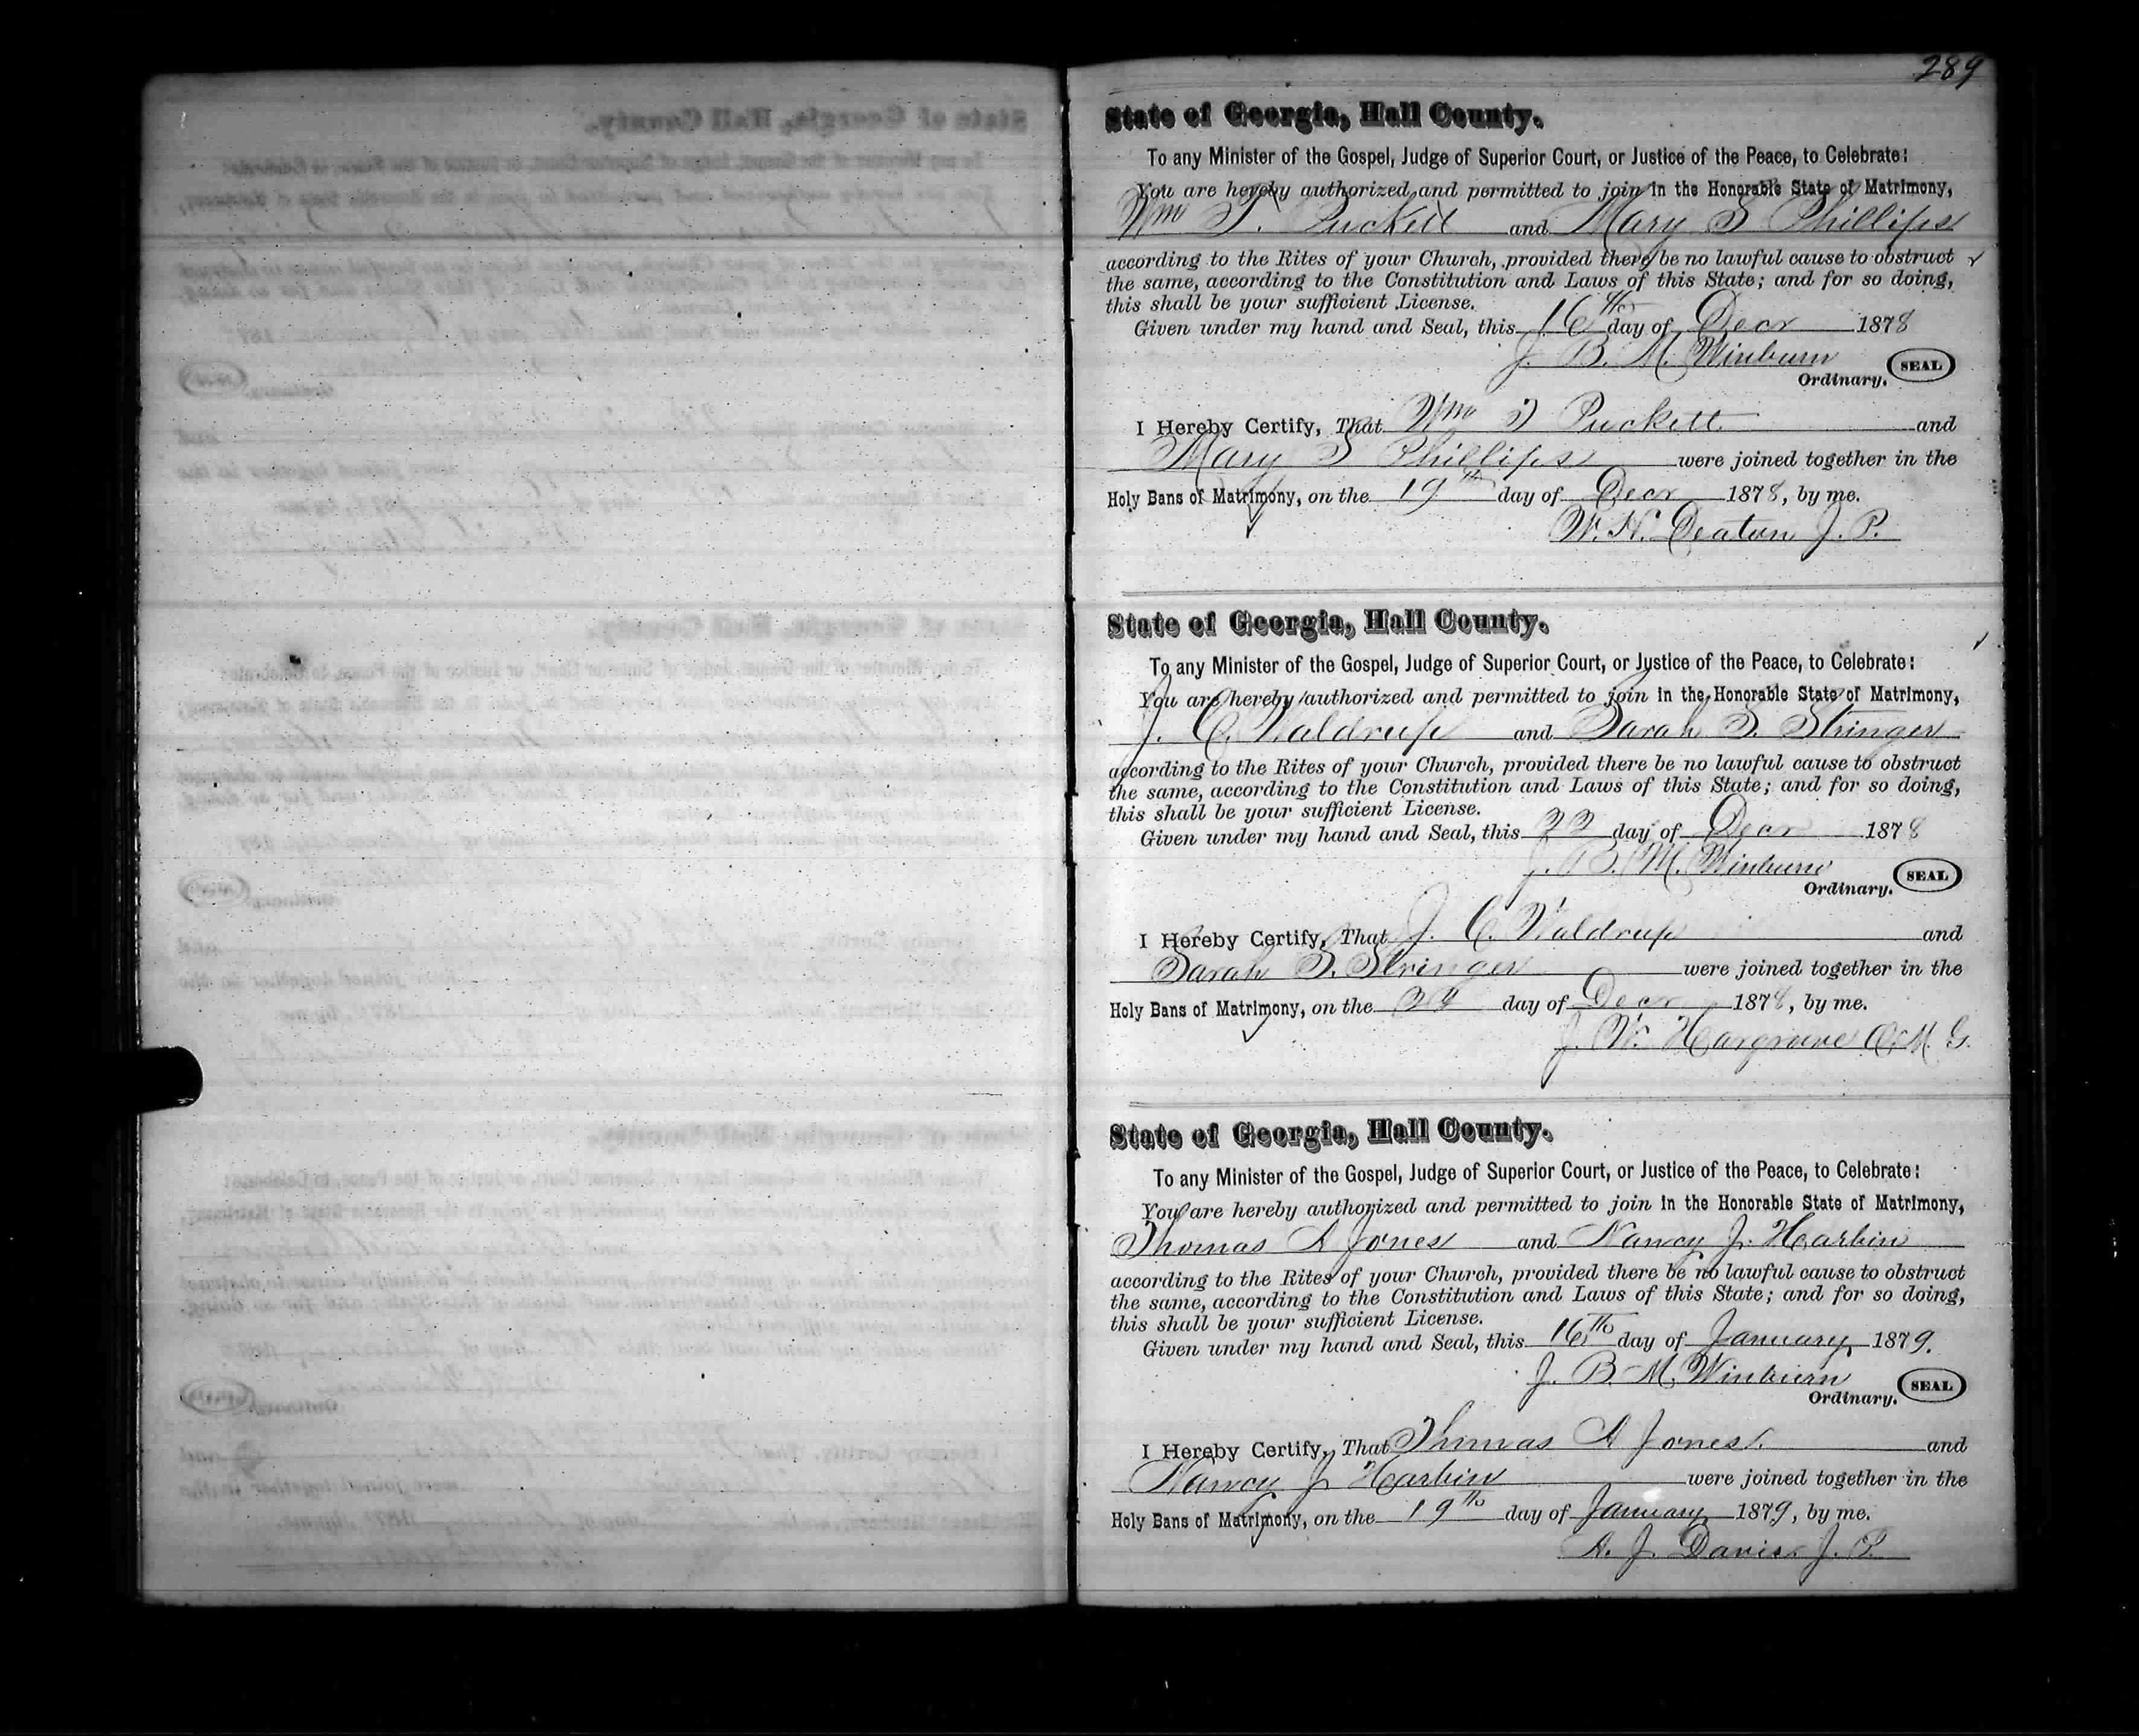 289
State of Georgia, Hall County.
To any Minister of the Gospel, Judge of Superior Court, or Justice of the Peace, to Celebrate:
You are hereby authorized and permitted to join in the Honorable State of Matrimony,
Wm T. Puckett and Mary S Phillips
according to the Rites of your Church, provided there be no lawful cause to obstruct
the same, according to the Constitution and Laws of this State; and for so doing,
this shall be your sufficient License.
Given under my hand and Seal, this 16th day of Decr 1878
J. B. M. Winburn
Ordinary. SEAL
I Hereby Certify, That Wm T Puckett and
Mary S Phillips were joined together in the
Holy Bans of Matrimony, on the 19th day of Decr 1878, by me.
W. H. Deaton J. P.
State of Georgia, Hall County.
To any Minister of the Gospel, Judge of Superior Court, or Justice of the Peace, to Celebrate:
You are hereby authorized and permitted to join in the Honorable State of Matrimony,
J. C. Waldrup and Sarah S. Stringer
according to the Rites of your Church, provided there be no lawful cause to obstruct
the same, according to the Constitution and Laws of this State; and for so doing,
this shall be your sufficient License.
Given under my hand and Seal, this 22 day of Decr 1878
J. B. M. Winburn
Ordinary. SEAL
I Hereby Certify, That J. C. Waldrup and
Sarah S. Stringer were joined together in the
Holy Bans of Matrimony, on the day of Decr 1878, by me.
J. W. Hargrove O. M. G.
State of Georgia, Hall County.
To any Minister of the Gospel, Judge of Superior Court, or Justice of the Peace, to Celebrate:
You are hereby authorized and permitted to join in the Honorable State of Matrimony,
Thomas A Jones and Nancy J. Harbin
according to the Rites of your Church, provided there be no lawful cause to obstruct
the same, according to the Constitution and Laws of this State; and for so doing,
this shall be your sufficient License.
Given under my hand and Seal, this 16th day of January 1879.
J. B. M. Winburn
Ordinary. SEAL
I Hereby Certify, That Thomas A Jones. and
Nancy J Harbin were joined together in the
Holy Bans of Matrimony, on the 19th day of January 1879, by me.
A. J. Davis J. P.